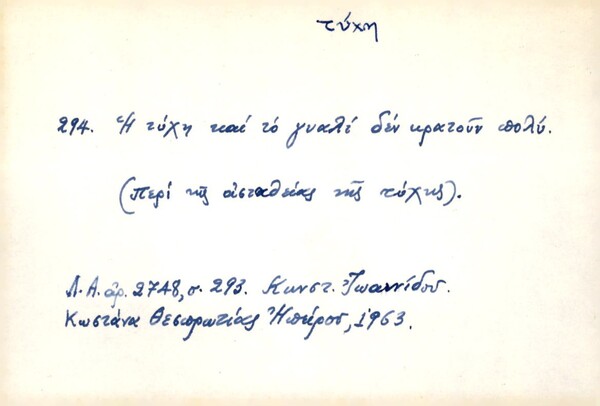 τύχη
294. Ἡ τύχη καί τό γυαλί δέν κρατοῦν πολύ.
(Περί τῆς ἀσταθείας τῆς τύχης).
Λ.Α. ἀρ. 2748, σ. 293. Κωνστ. Ἰωαννίδου.
Κωστάνα Θεσπρωτίας Ἠπείρου, 1963.